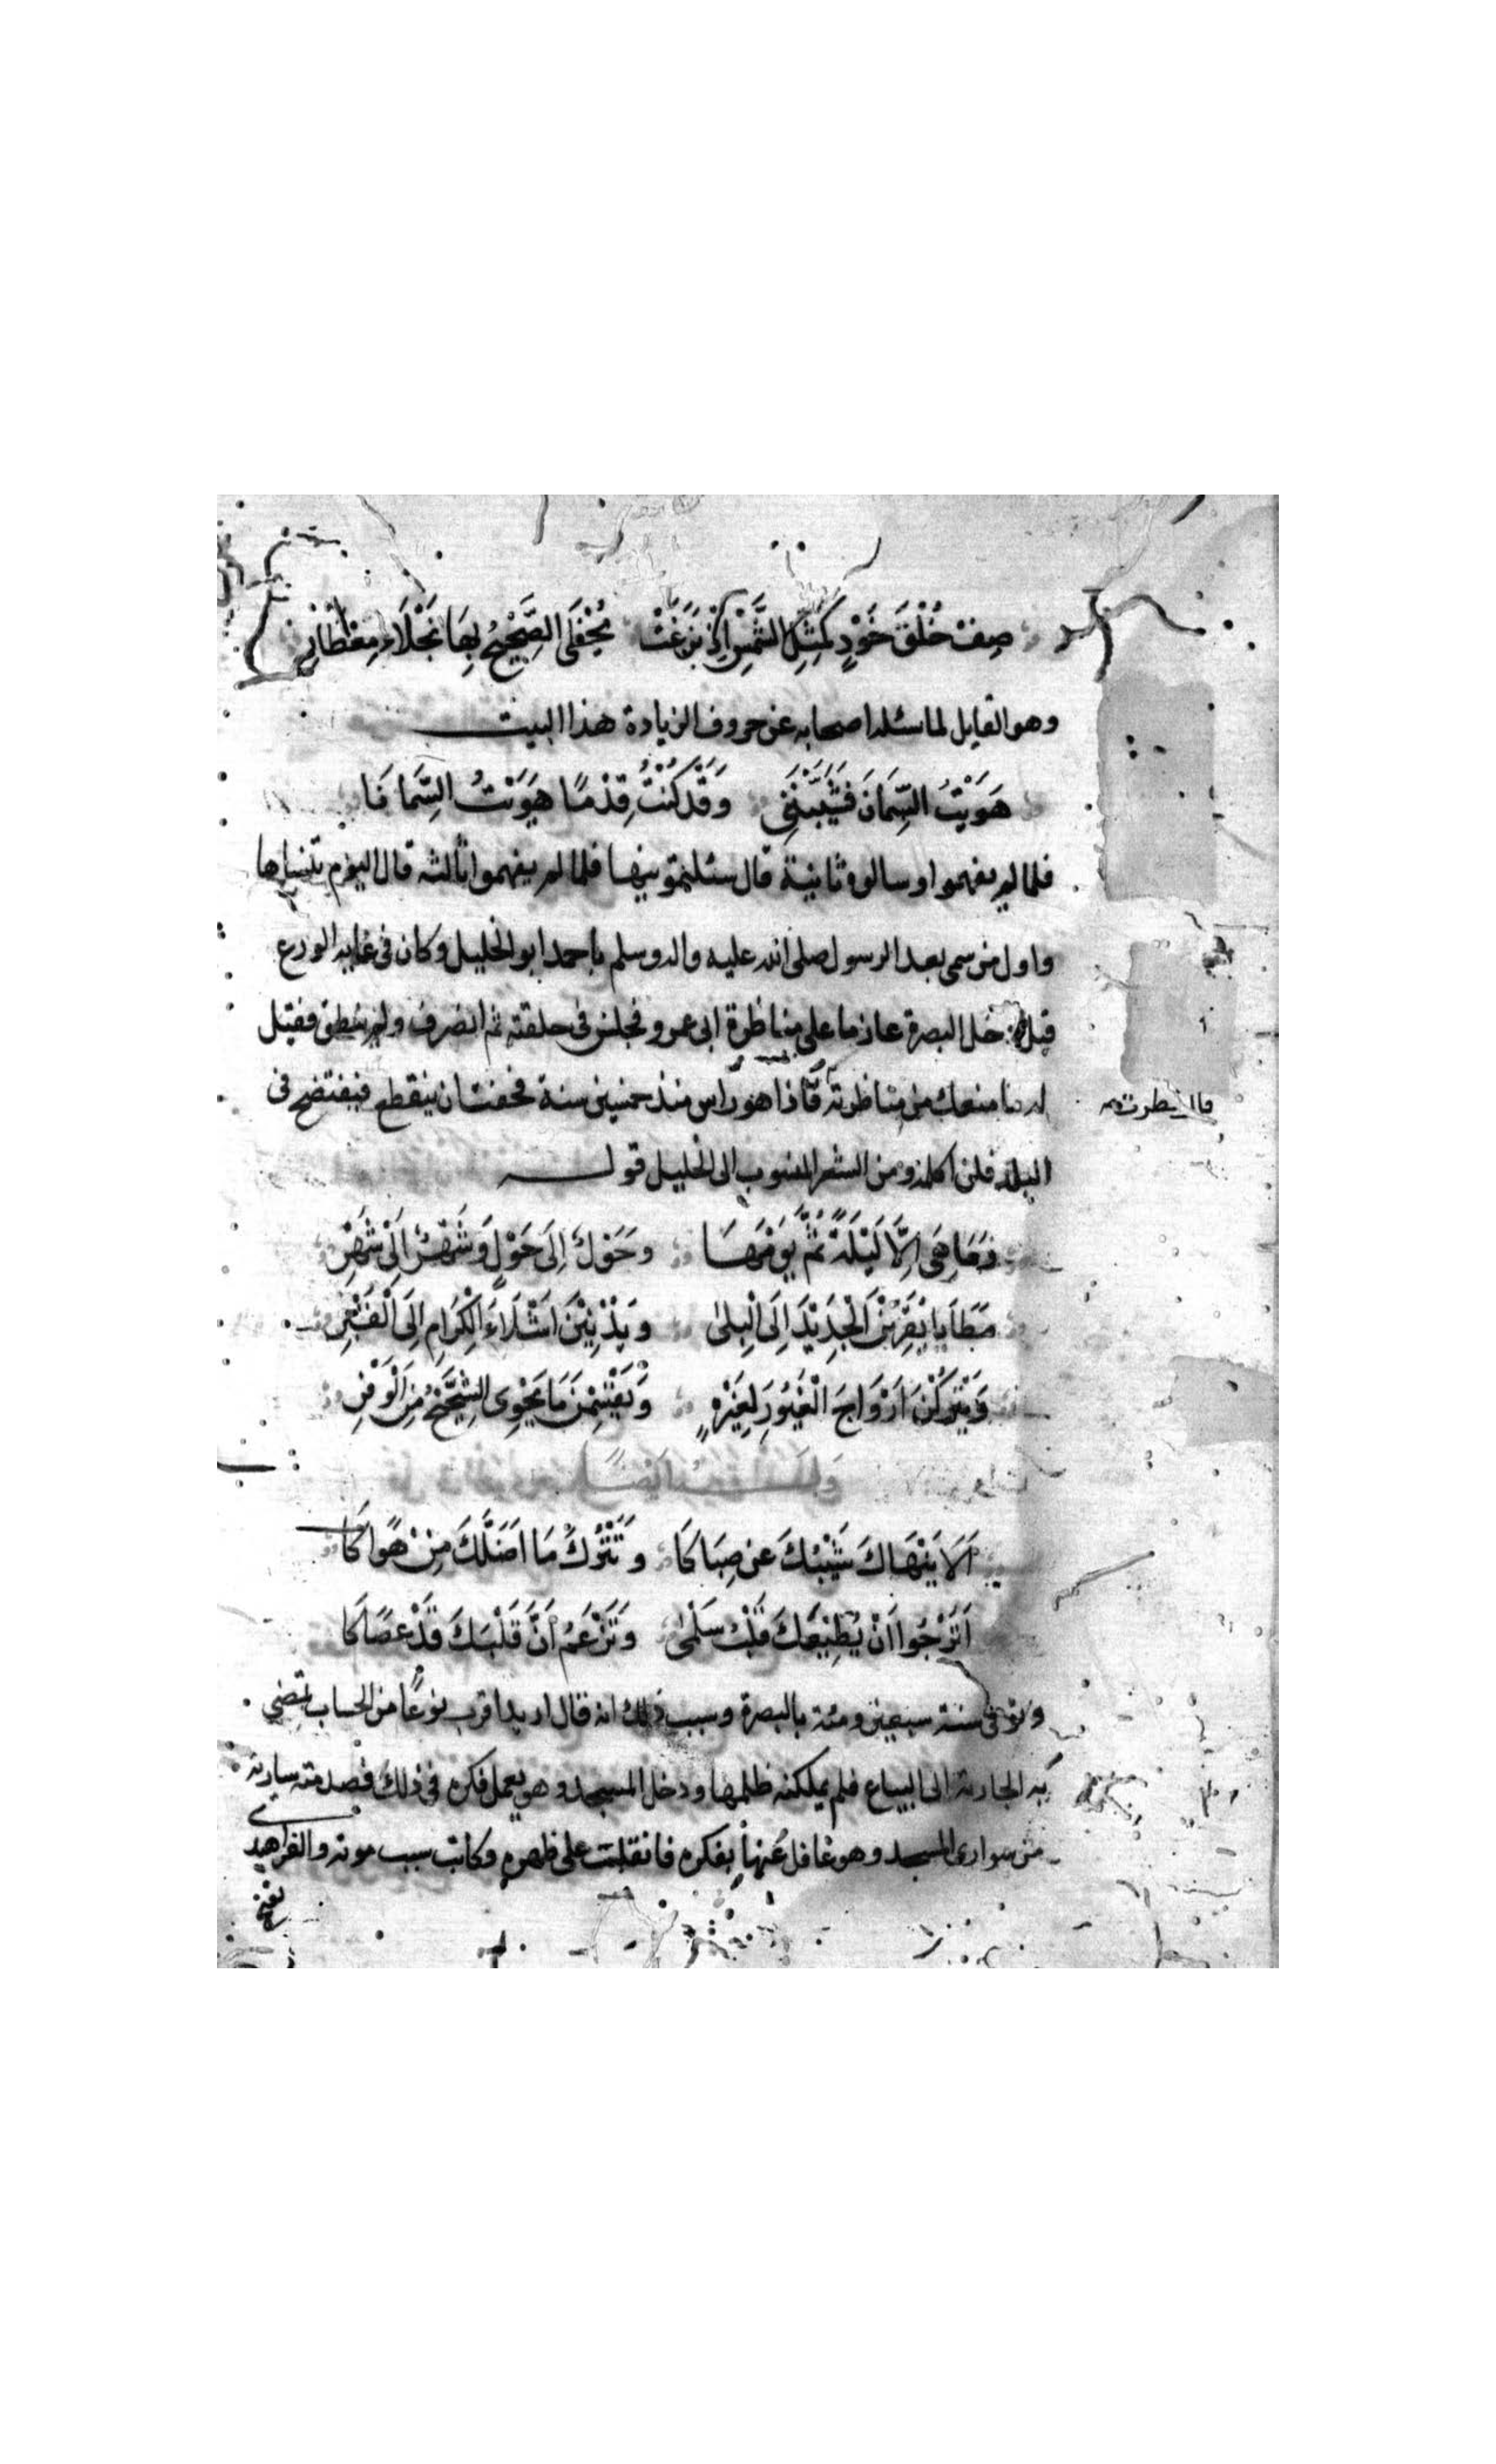 صِفْ خُلْقَ خَوْدٍ كَمِثْلِ الشَّمْسِ إِذْ بَزَغَتْ يُحْظَى الضَّجِيعُ بِهَا نَجْلَاءَ مِعْطَارِ
وهو القايل لما سئله اصحابه عن حروف الزيادة هذا البيت
هَوَيْتُ السِّمَانَ فَشَيَّبْنَنِي وَقَدْ كُنْتُ قِدْمًا هَوَيْتُ السِّمَانَا
فلما لم يفهموا وسالوه ثانية قال سئلتمونيها فلما لم يفهموا ثالثه قال اليوم تنساها
واول من سمى بعد الرسول صلى الله عليه واله وسلم باحمد ابو الخليل وكان فى غاية الورع
قيل دخل البصرة عازما على مناظرة ابى عمرو فجلس فى حلقته ثم انصرف ولم ينطق فقيل
له ما منعك من مناظرته فاذا هو راس منذ خمسين سنة فخفت ان ينقطع فيفتضح فى
البلد فلن اكلمه ومن الشعر المنسوب الى الخليل قوله
وَمَا هِيَ اِلَّا لَيْلَةٌ ثُمَّ يَوْمُهَا وَحَوْلٌ اِلَى حَوْلٍ وَشَهْرٌ اِلَى شَهْرِ
مَطَايَا يُقَرِّبْنَ الْجَدِيْدَ اِلَى الْبِلىٰ وَيُدْنِيْنَ اَشْلَاءَ الْكِرَامِ اِلَى الْقَبْرِ
وَيَتْرُكْنَ اَزْوَاجَ الْغَيُوْرِ لِغَيْرِهِ وَيَقْسِمْنَ مَا يَحْوِى الشَّحِيْحُ مِنَ الْوَفْرِ
اَلَا يَنْهَاكَ شَيْبُكَ عَنْ صِبَاكَا وَتَتْرُكُ مَا اَضَلَّكَ مِنْ هَوَاكَا
اَتَرْجُوا اَنْ يُطِيْعَكَ قَلْبُ سَلْمىٰ وَتَزْعَمُ اَنَّ قَلْبَكَ قَدْ عَصَاكَا
وتوفى سنة سبعين ومئة بالبصرة وسبب ذلك انه قال اريد اقرب نوعًا من الحساب تمضي
به الجارية الى البياع فلم يمكنه ظلمها ودخل المسجد وهو يعمل فكره فى ذلك فصدمته سارية
من سوارى المسجد وهو غافل عنها بفكره فانقلب على ظهره وكانت سبب موته والفراهيدي